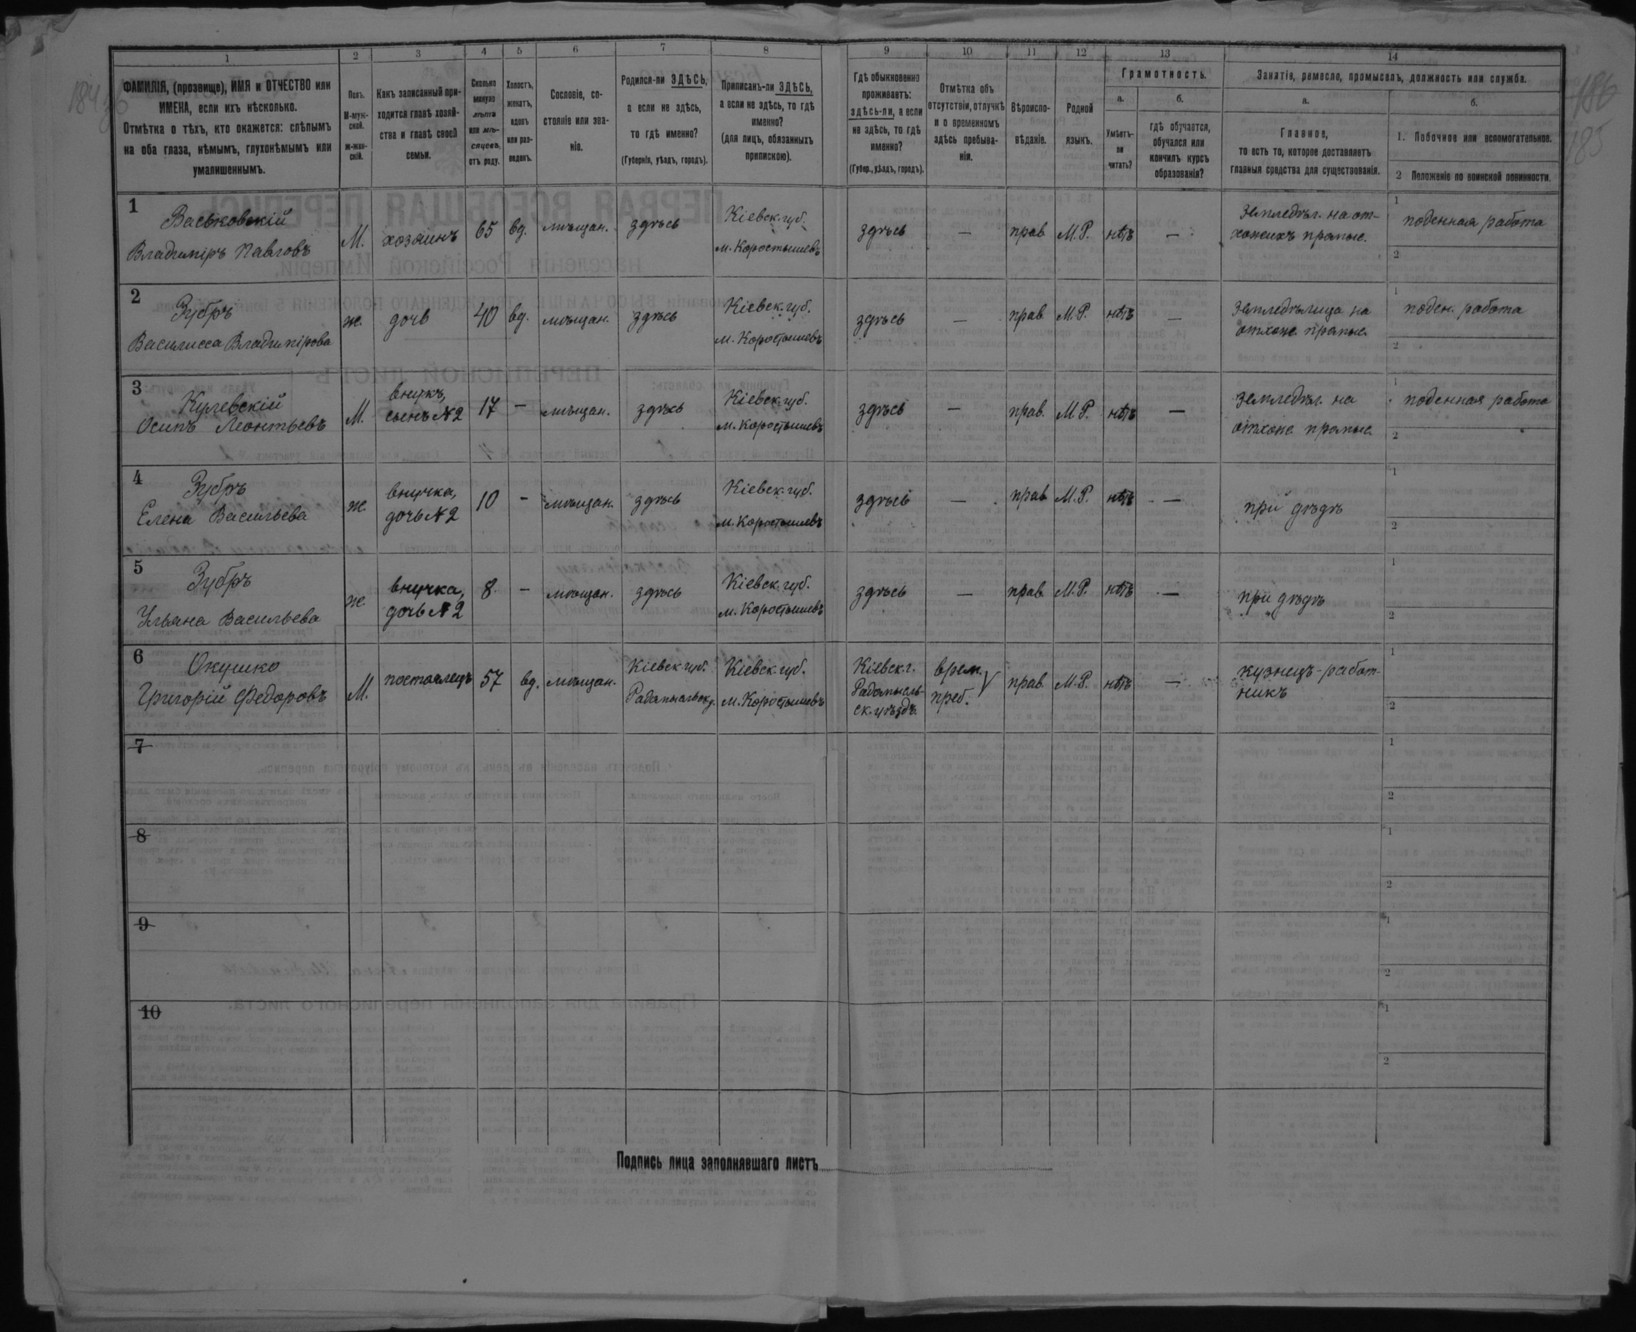 1
2
3
4
5
6
7
8
9
10
11
12
13
14
ФАМИЛІЯ, (прозвище), ИМЯ и ОТЧЕСТВО или
ИМЕНА, если ихъ нѣсколько.
Отмѣтка о тѣхъ, кто окажется: слѣпымъ
на оба глаза, нѣмымъ, глухонѣмымъ или
умалишеннымъ.
Полъ.
М-муж-
ской.
ж-жен-
скій.
Какъ записанный при-
ходится главѣ хозяй-
ства и главѣ своей
семьи.
Сколько
минуло
лѣтъ
или мѣ-
сяцевъ
отъ роду.
Холостъ,
женатъ,
вдовъ
или раз-
веденъ.
Сословіе, со-
стояніе или зва-
ніе.
Родился-ли ЗДѢСЬ,
а если не здѣсь,
то гдѣ именно?
(Губернія, уѣздъ, городъ).
Приписанъ-ли ЗДѢСЬ,
а если не здѣсь, то гдѣ
именно?
(для лицъ, обязанныхъ
припискою).
Гдѣ обыкновенно
проживаетъ:
здѣсь-ли, а если
не здѣсь, то гдѣ
именно?
(Губер., уѣздъ, городъ).
Отмѣтка объ
отсутствіи, отлучкѣ
и о временномъ
здѣсь пребыва-
ніи.
Вѣроиспо-
вѣданіе.
Родной
языкъ.
Грамотность.
а.
Умѣетъ-
ли
читать?
б.
гдѣ обучается,
обучался или
кончилъ курсъ
образованія?
Занятіе, ремесло, промыселъ, должность или служба.
а.
Главное,
то есть то, которое доставляетъ
главныя средства для существованія.
б.
1. Побочное или вспомогательное.
2 Положеніе по воинской повинности.
186
185
1
Васьковскій
Владиміръ Павловъ
М.
хозяинъ
65
вд.
мѣщан.
здѣсь
Кіевск. губ.
м. Коростышевъ
здѣсь
—
прав.
М.Р.
нѣтъ
—
земледѣл. на от-
хожихъ промыс.
1
поденная работа
2
2
Зубръ
Василисса Владимірова
ж.
дочь
40
вд.
мѣщан.
здѣсь
Кіевск. губ.
м. Коростышевъ
здѣсь
—
прав.
М.Р.
нѣтъ
—
земледѣлица на
отхожс. промыс.
1
поден. работа
2
3
Кулевскій
Осипъ Леонтьевъ
М.
внукъ,
сынъ №2
17
—
мѣщан.
здѣсь
Кіевск. губ.
м. Коростышевъ
здѣсь
—
прав.
М.Р.
нѣтъ
—
земледѣл. на
отхожс. промыс.
1
поденная работа
2
4
Зубръ
Елена Васильева
ж.
внучка,
дочь №2
10
—
мѣщан.
здѣсь
Кіевск. губ.
м. Коростышевъ
здѣсь
—
прав.
М.Р.
нѣтъ
—
при дѣдѣ
1
2
5
Зубръ
Ульяна Васильева
ж.
внучка,
дочь №2
8.
—
мѣщан.
здѣсь
Кіевск. губ.
м. Коростышевъ
здѣсь
—
прав.
М.Р.
нѣтъ
—
при дѣдѣ
1
2
6
Окушко
Григорій Федоровъ
М.
постоялецъ
57
вд.
мѣщан.
Кіевск. губ.
Радомысльск. у.
Кіевск. губ.
м. Коростышевъ
Кіевск. г.
Радомысль-
ск. уѣздъ.
врем.
преб.
прав.
М.Р.
нѣтъ
—
кузнецъ-работ-
никъ
1
2
7
1
2
8
1
2
9
1
2
10
1
2
Подпись лица заполнявшаго листъ